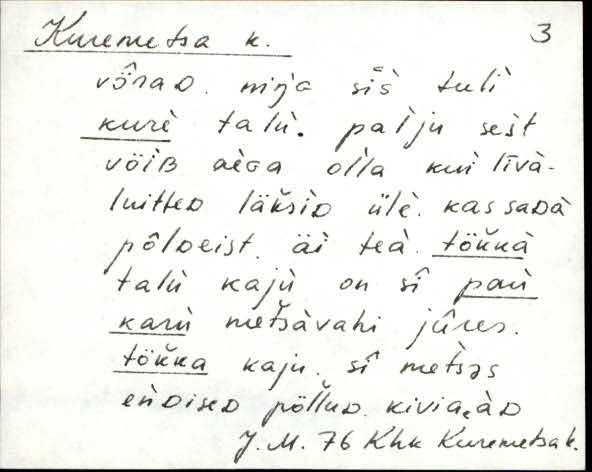 Kuremetsa k. 3
võ̂rad. nĩja sìis tuli
kurè talù. palju sest
võìʙ aèɢa olla kui līvà-
luitteD läksiD ülè. kas saDà
põ̂lDeist. äi teà tökkà
talù kajù on sî pan
karù metsàvahi jûres.
tökka kajù. sî metsəs
enDiseD põlluD. kiviaeàD
J. M. 76 Khk Kuremetsa k.